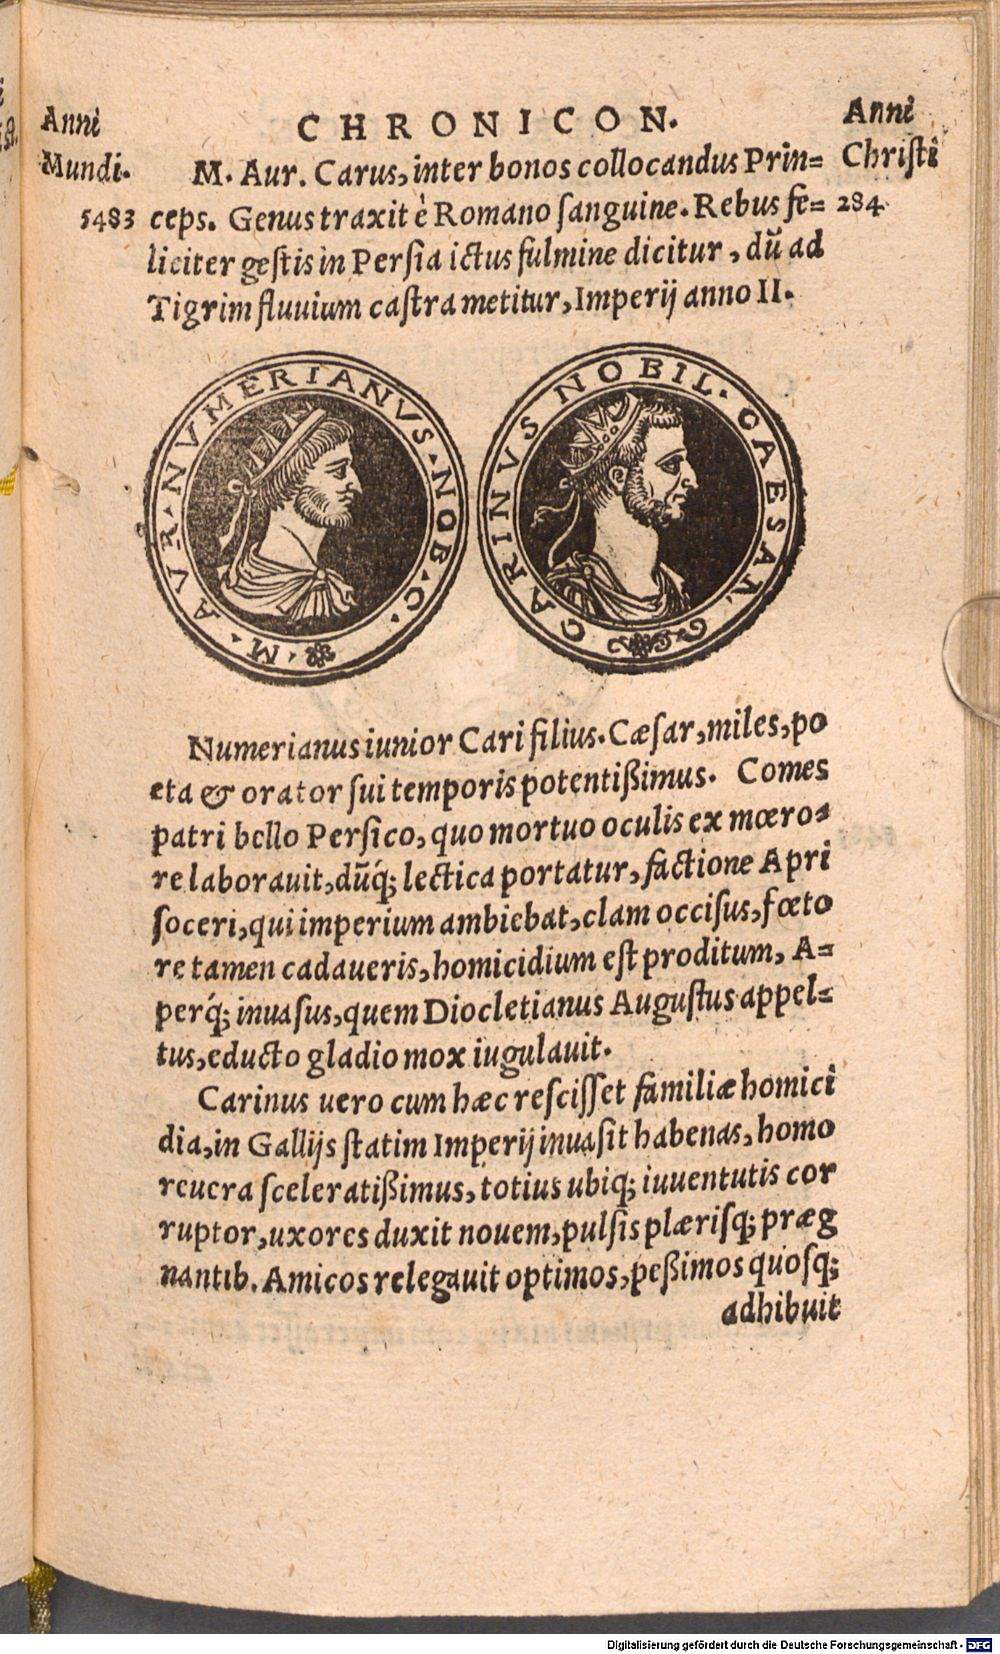 Anni
Mundi.
CHRONICON.
Anni
Christi
M. Aur. Carus, inter bonos collocandus Prin=
5483 ceps. Genus traxit è Romano sanguine. Rebus fe= 284
liciter gestis in Persia ictus fulmine dicitur, dū ad
Tigrim fluuium castra metitur, Imperij anno II.
M. AVR. NVMERIANVS. NOB. C.
CARINVS NOBIL. CAESAR
Numerianus iunior Cari filius. Cæsar, miles, po
eta & orator sui temporis potentißimus. Comes
patri bello Persico, quo mortuo oculis ex mœro=
re laborauit, dūq; lectica portatur, factione Apri
soceri, qui imperium ambiebat, clam occisus, fœto
re tamen cadaueris, homicidium est proditum, A=
perq́; inuasus, quem Diocletianus Augustus appel=
tus, educto gladio mox iugulauit.
Carinus uero cum hæc resciſſet familiæ homici
dia, in Gallijs statim Imperij inuasit habenas, homo
reuera sceleratißimus, totius ubiq; iuuentutis cor
ruptor, uxores duxit nouem, pulsis plærisq; præg
nantib. Amicos relegauit optimos, peßimos quosq;
adhibuit
Digitalisierung gefördert durch die Deutsche Forschungsgemeinschaft - DFG